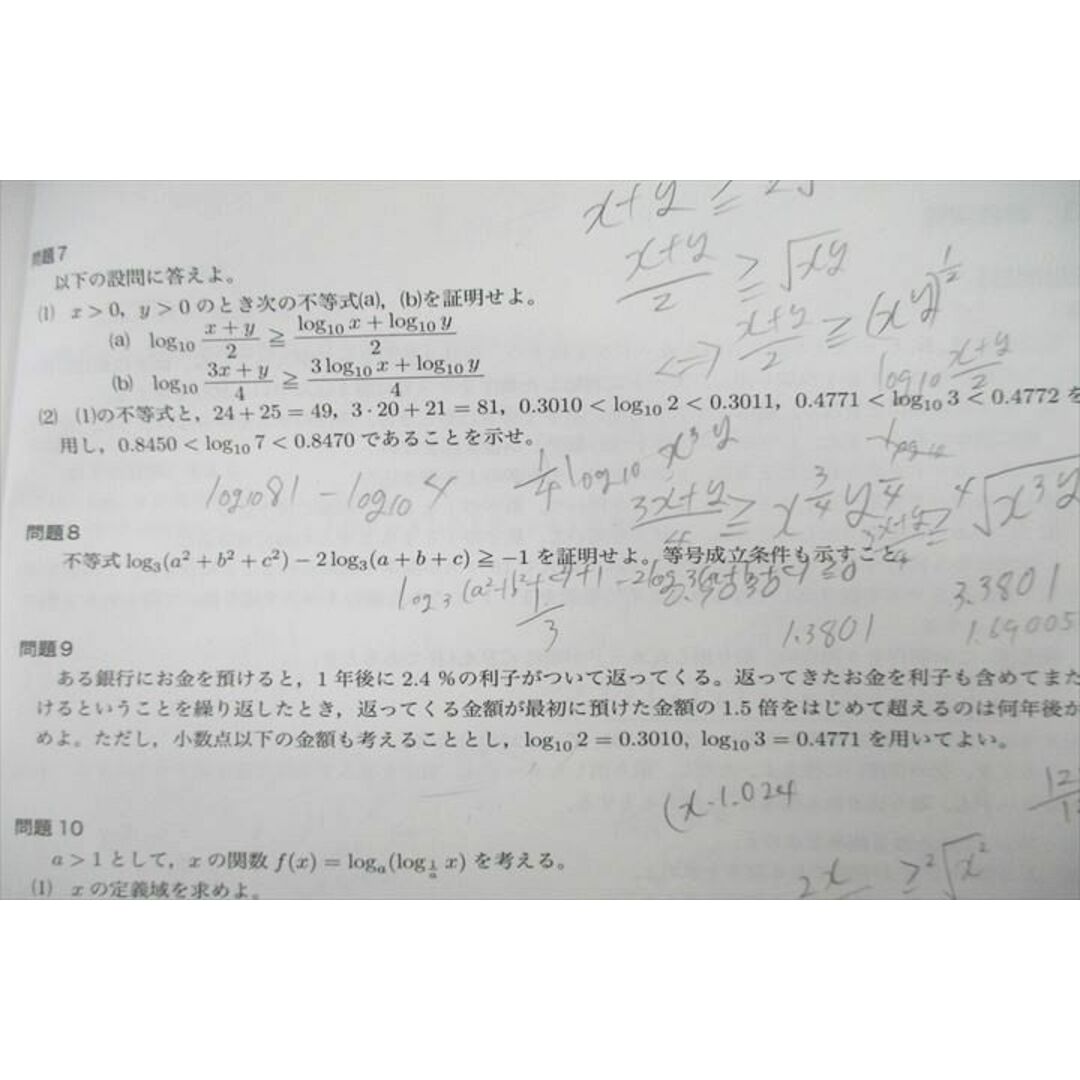 問題7
以下の設問に答えよ。
(1) x>0, y>0のとき次の不等式(a), (b)を証明せよ。
(a) log₁₀ (x+y)/2 ≧ (log₁₀ x + log₁₀ y)/2
(b) log₁₀ (3x+y)/4 ≧ (3 log₁₀ x + log₁₀ y)/4
(2) (1)の不等式と, 24+25=49, 3·20+21=81, 0.3010<log₁₀ 2<0.3011, 0.4771<log₁₀ 3<0.4772 を
用し, 0.8450<log₁₀ 7<0.8470 であることを示せ。
x+y ≧ 2√
(x+y)/2 ≧ √xy
⇔ (x+y)/2 ≧ (xy)^½
log₁₀ (x+y)/2
log₁₀81 − log₁₀4
1/4 log₁₀ x³y
(3x+y)/4 ≧ x^¾ y^¼
(3x+y)/4 ≧ ⁴√x³y
問題8
不等式 log₃(a²+b²+c²) − 2log₃(a+b+c) ≧ −1 を証明せよ。等号成立条件も示すこと。
log₃(a²+b²+c²)+1 −2log₃(a+b+c) ≧0
1/3
3.3801
1.3801
1.69005
問題9
ある銀行にお金を預けると, 1年後に2.4%の利子がついて返ってくる。返ってきたお金を利子も含めてまた
けるということを繰り返したとき, 返ってくる金額が最初に預けた金額の1.5倍をはじめて超えるのは何年後か
めよ。ただし, 小数点以下の金額も考えることとし, log₁₀ 2=0.3010, log₁₀ 3=0.4771 を用いてよい。
(x·1.024
問題10
a>1として, xの関数 f(x)=logₐ(log_{1/a} x) を考える。
(1) xの定義域を求めよ。
2x ≧ ²√x²